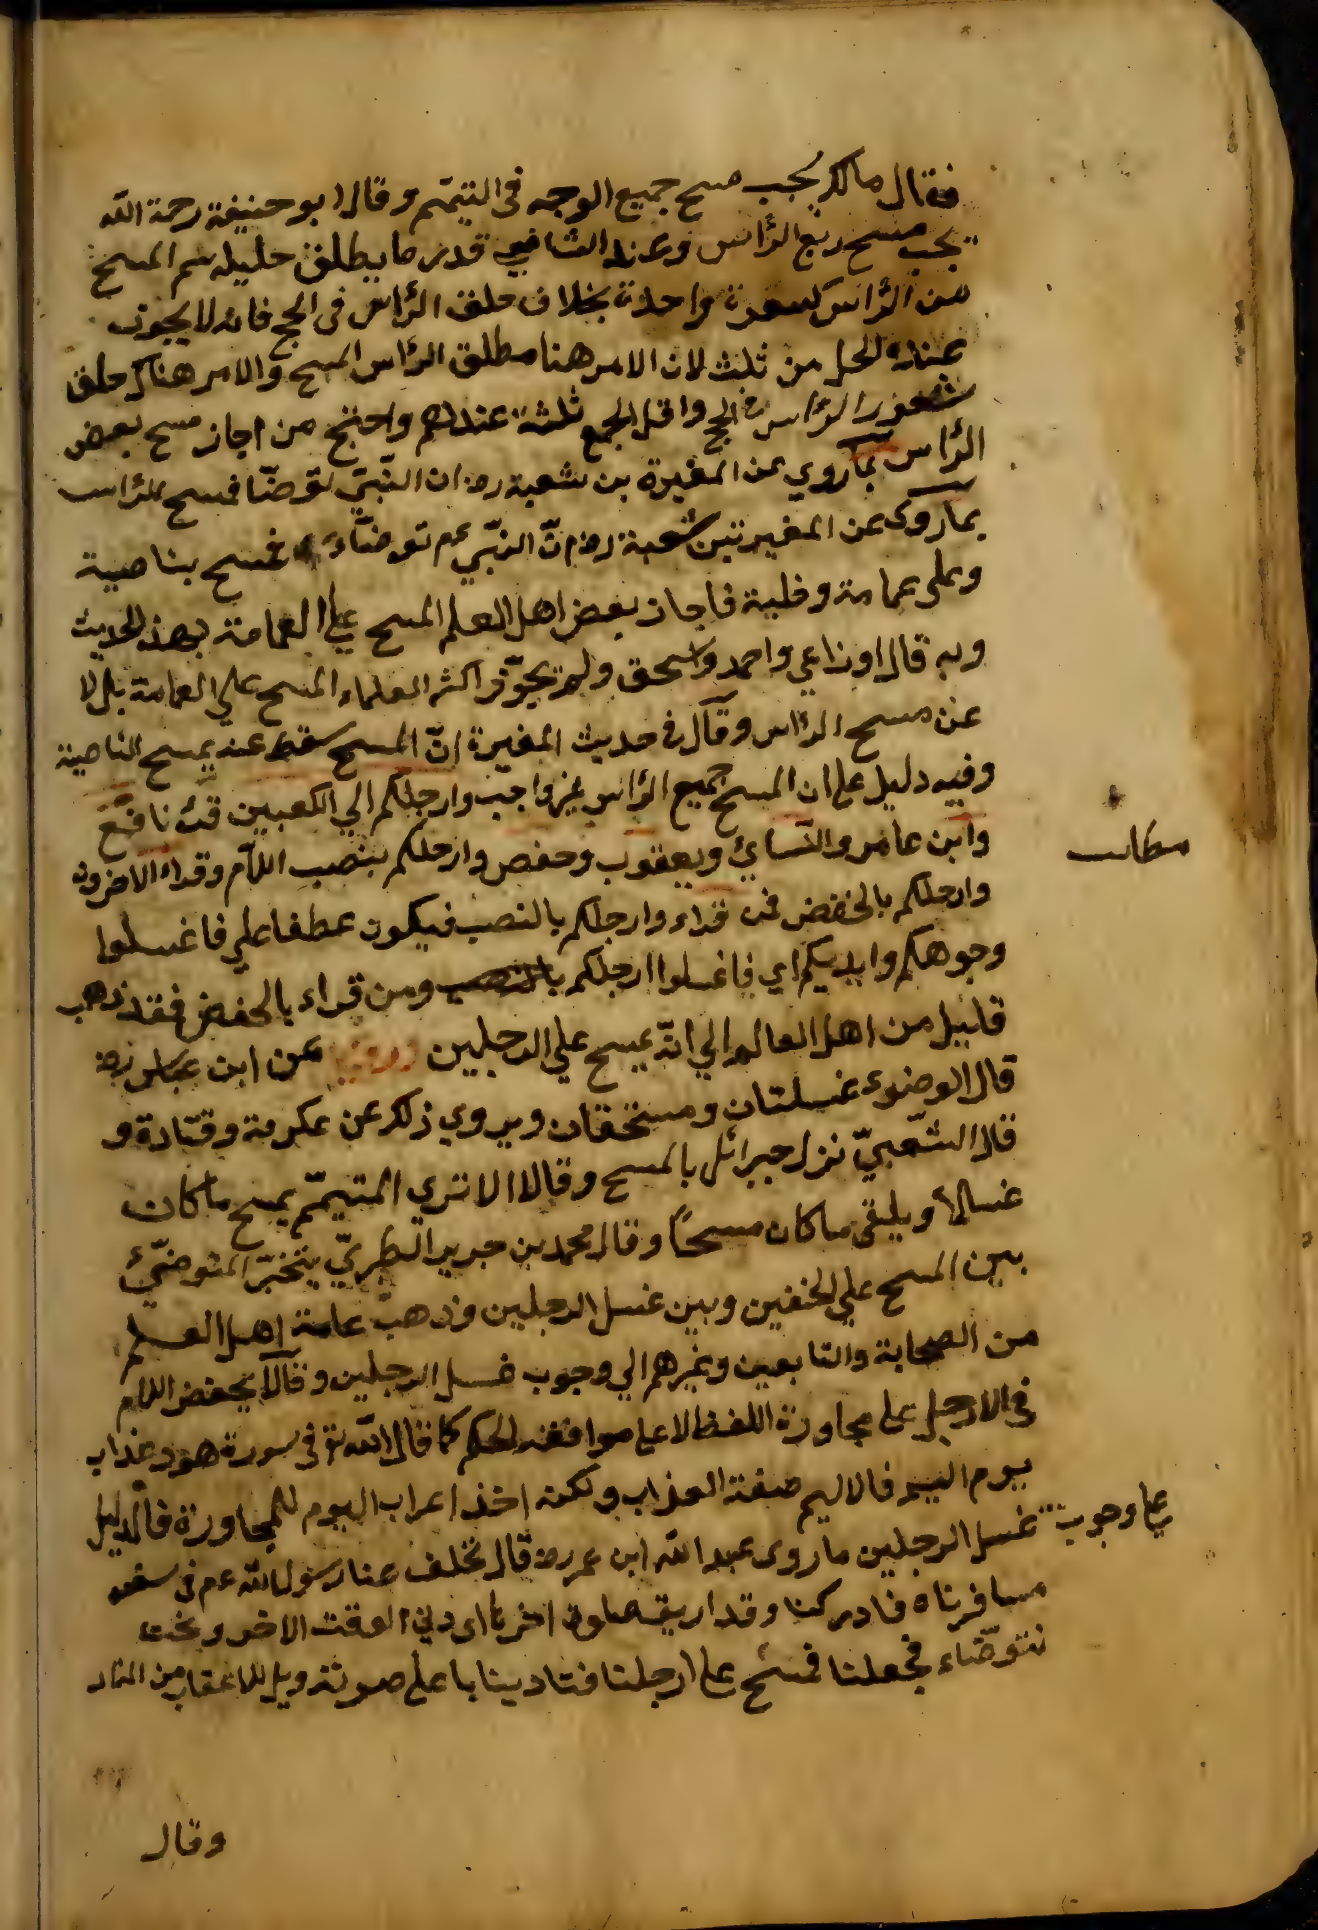 فقال مالك يجب مسح جميع الوجه فى التيمّم وقال ابو حنيفة رحمة الله
يجب مسح ربع الرّاس وعند الشافعي قدر ما يطلق عليه اسم المسح
من الرّاس كشعرة واحدة بخلاف حلق الرّاس فى الحج فانه لا يجوز
عنده الحل من ثلث لان الامر هنا مطلق الرّاس المسح والامر هناك حلق
شعور الرّاس فى الحج واقل الجمع ثلثة عندهم واحتج من اجاز مسح بعض
الرّاس بما روي عن المغيرة بن شعبة رض ان النّبيّ توضّا فمسح للرّاس
بما روى عن المغيرة بن شعبة رض انّ النبّي عم توضّاء فمسح بناصية
وعلى عمامة وخفية فاجاز بعض اهل العلم المسح علي العمامة بهذ الحديث
وبه قال اوزاعي واحمد واسحق ولم يجوّز اكثر العلماء المسح علي العمامة بدلا
عن مسح الرّاس وقال فى حديث المغيرة انّ المسح سقط عنه بمسح الناصية
وفيه دليل على ان المسح جميع الرّاس غير واجب وارجلكم الي الكعبين قرء نافع
وابن عامر والكسائي ويعقوب وحفص وارجلكم بنصب اللام وقراء الاخرون
وارجلكم بالخفض فمن قراء وارجلكم بالنصب فيكون عطفا علي فاغسلوا
وجوهكم وايديكم اي فاغسلوا ارجلكم بالنصب ومن قراء بالخفض فقد ذهب
قليل من اهل العالم الي انّه يمسح علي الرجلين وروي عن ابن عباس رض
قال الوضوء غسلتان ومسحتان ويروي ذلك عن عكرمة وقتادة و
قال الشّعبيّ نزل جبرائل بالمسح وقال الا تري المتيمّم يمسح ما كان
غسالاً ويلقى ما كان مسحاً وقال محمد بن جرير الطبريّ يتخيّر المتوضّيُ
بين المسح علي الخفين وبين غسل الرجلين وذهب عامة اهل العلم
من الصحابة والتابعين وغيرهم الي وجوب غسل الرجلين وقالا بخفض اللام
فى الارجل على مجاورة اللفظ لا على موافقة الحكم كما قال الله تع فى سورة هود عذاب
يوم اليم فالاليم صفة العذاب ولكن اخذ اعراب اليوم للمجاورة فالدليل
على وجوب غسل الرجلين ما روى عبد الله ابن عمر رض قال تخلف عنا رسول الله عم فى سفر
سافرناه فادركنا وقد ارهقنا صلوة اخرنا اى دني الوقت الاخر ونحن
نتوضّاء فجعلنا نمسح على ارجلنا فنادينا باعلى صوته ويل للاعقاب من النار
مطلب
وقال